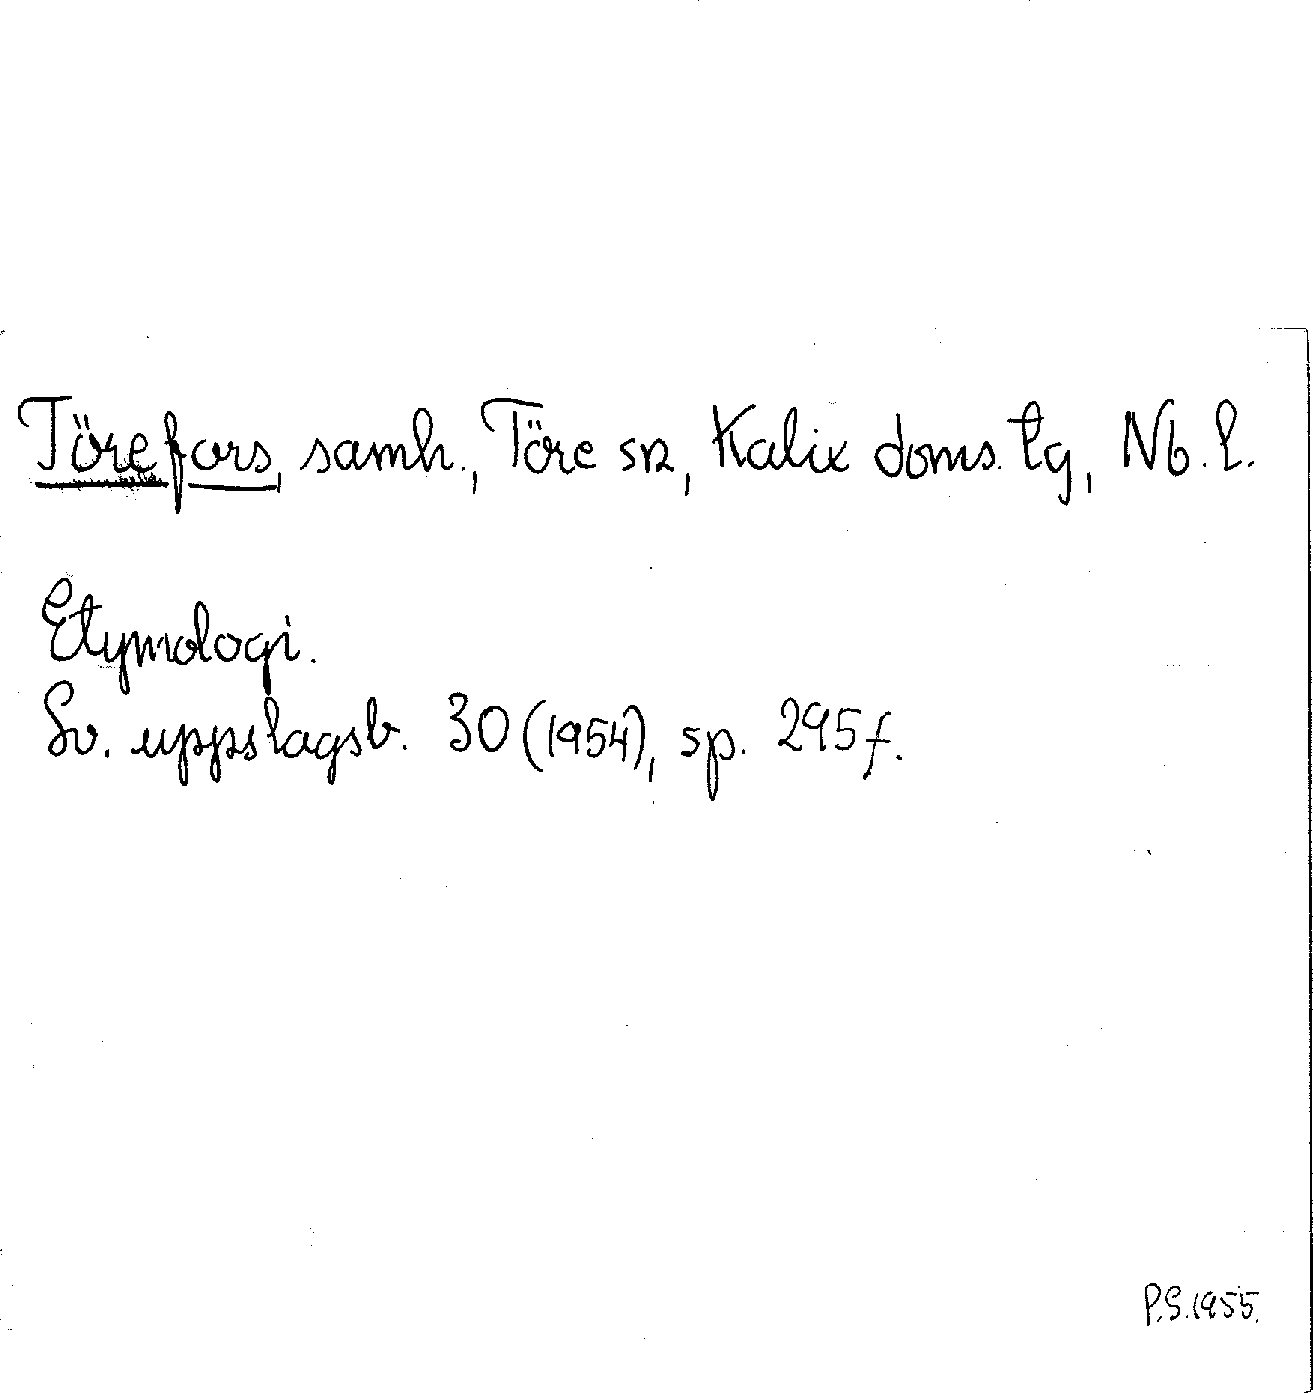 Törefors, samh., Töre sn, Kalix doms. tg, Nb. l.
Etymologi.
Sv. uppslagsb. 30 (1954), sp. 295 f.
P.S. 1955.